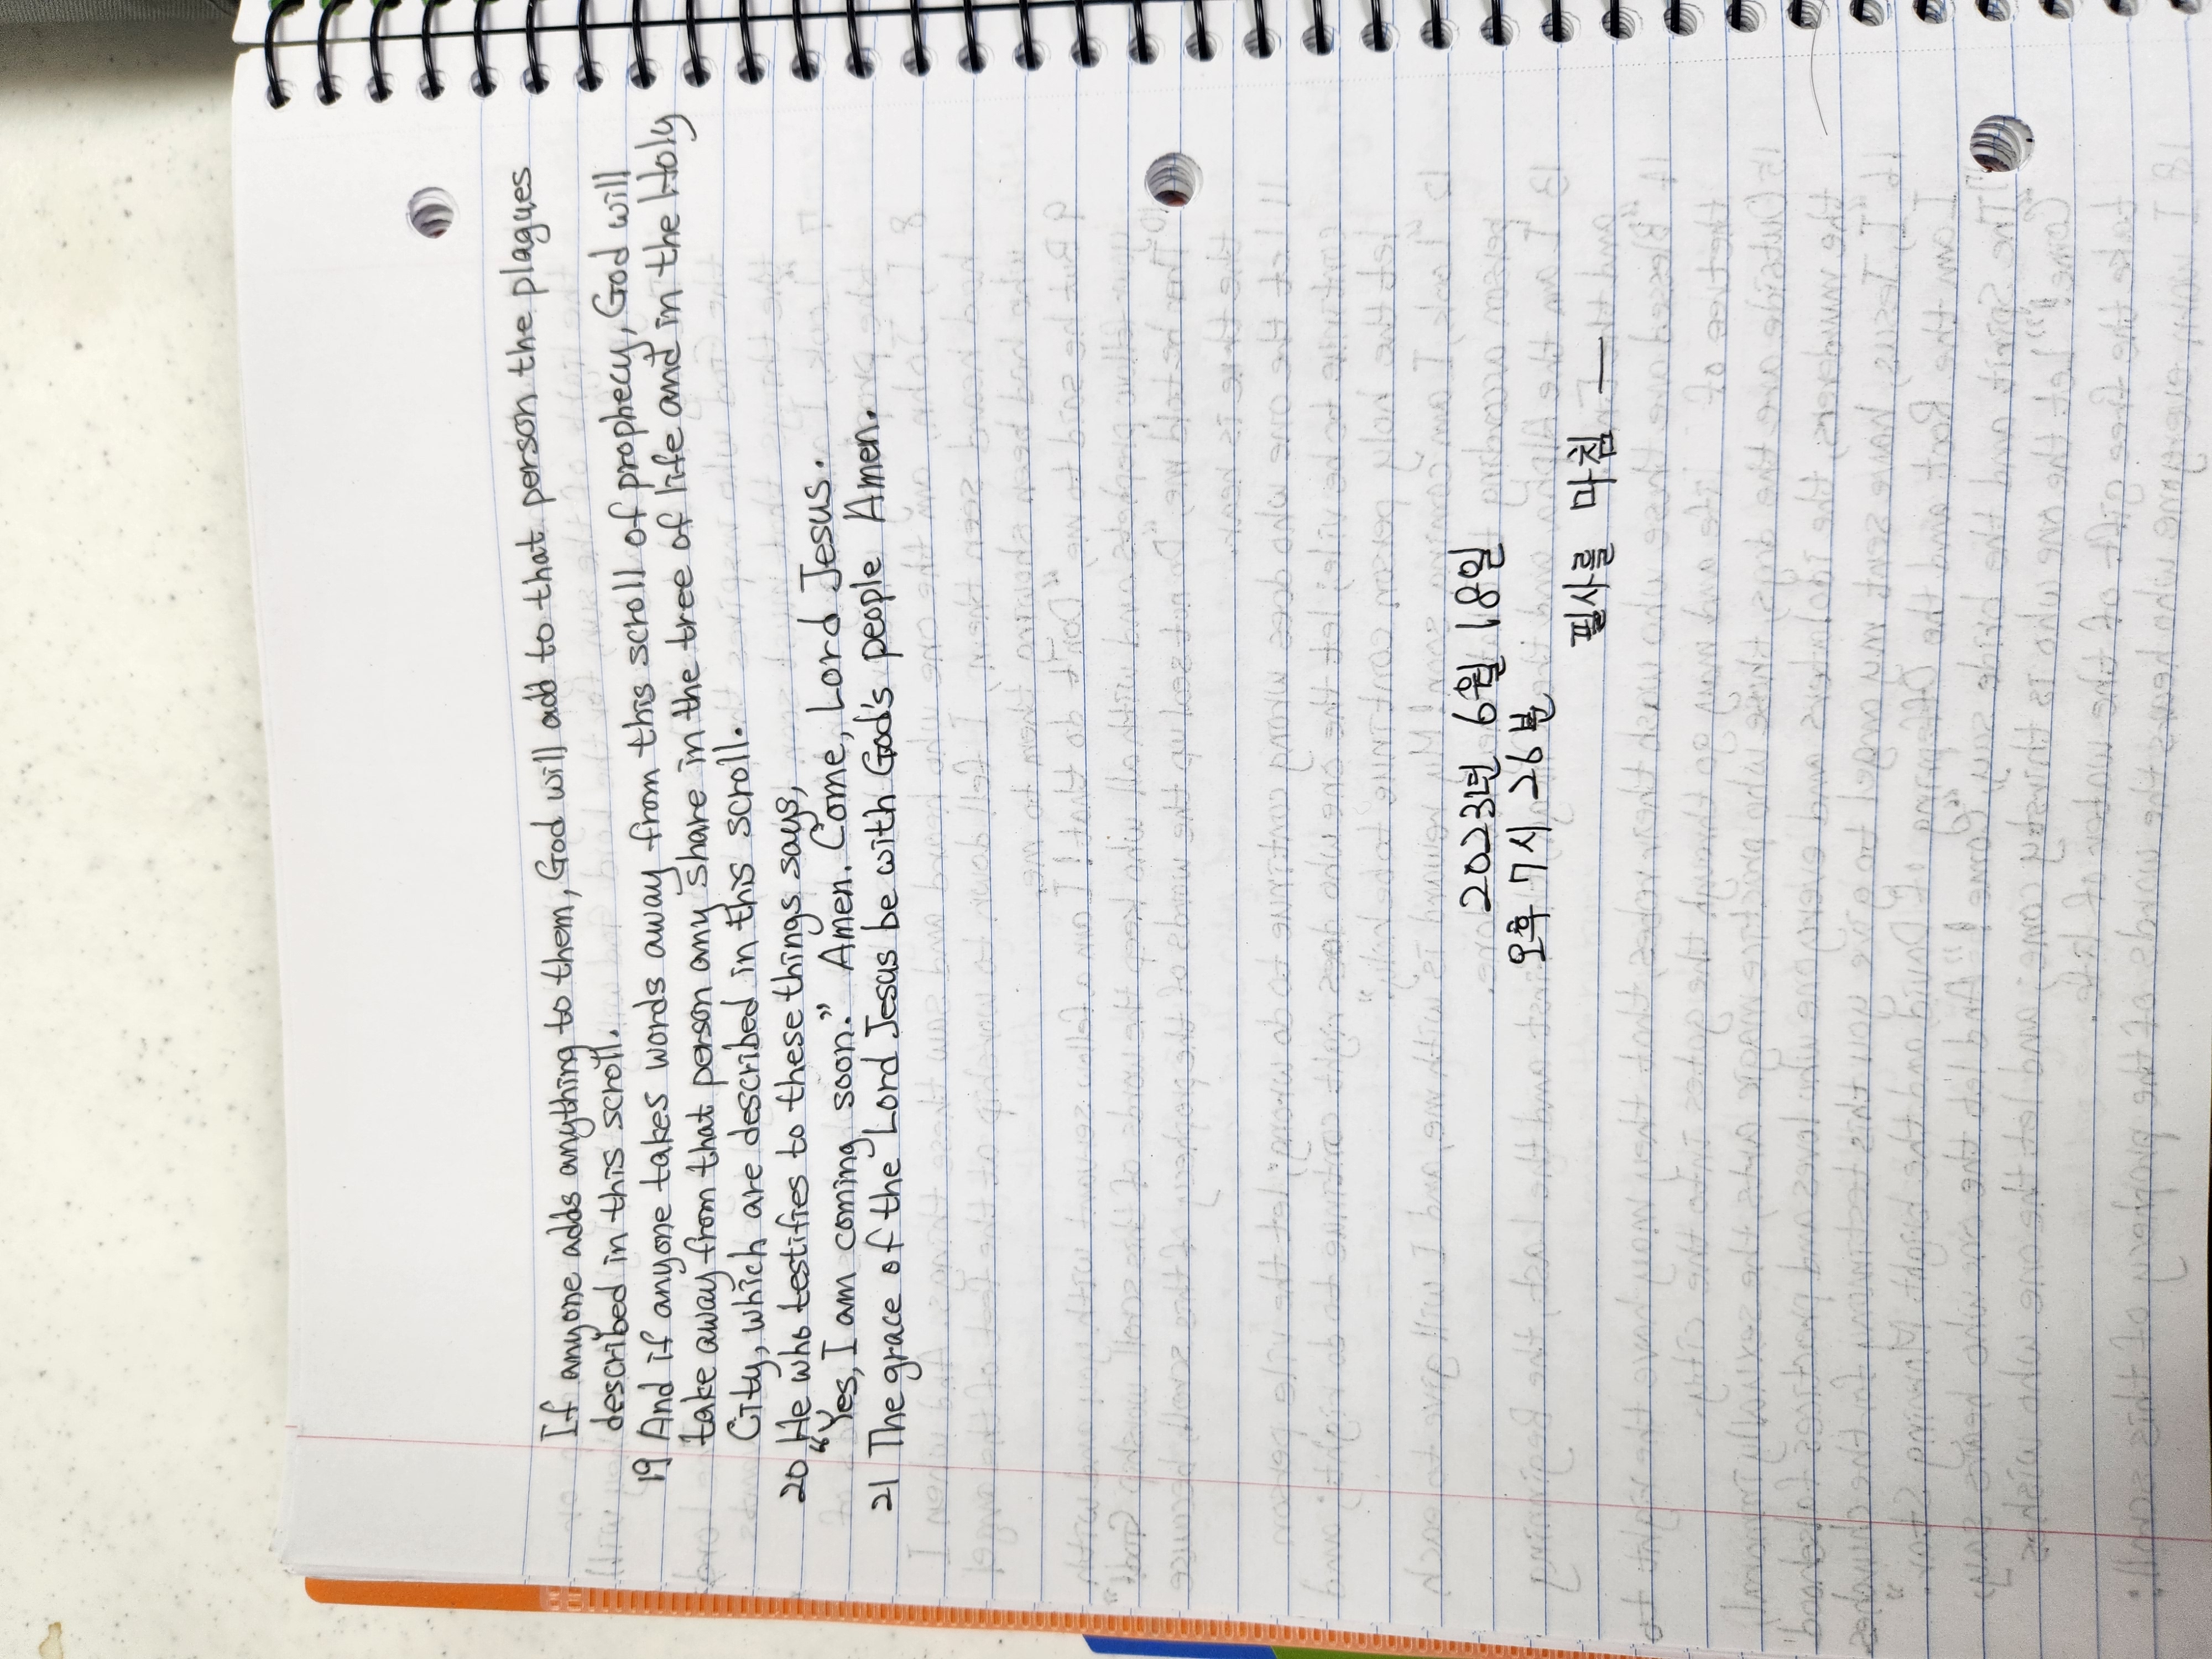 If anyone adds anything to them, God will add to that person the plagues
described in this scroll.
19 And if anyone takes words away from this scroll of prophecy, God will
take away from that person any share in the tree of life and in the Holy
City, which are described in this scroll.
20 He who testifies to these things says,
"Yes, I am coming soon." Amen. Come, Lord Jesus.
21 The grace of the Lord Jesus be with God's people Amen.
2023년 6월 18일
오후 7시 26분
필사를 마침 —